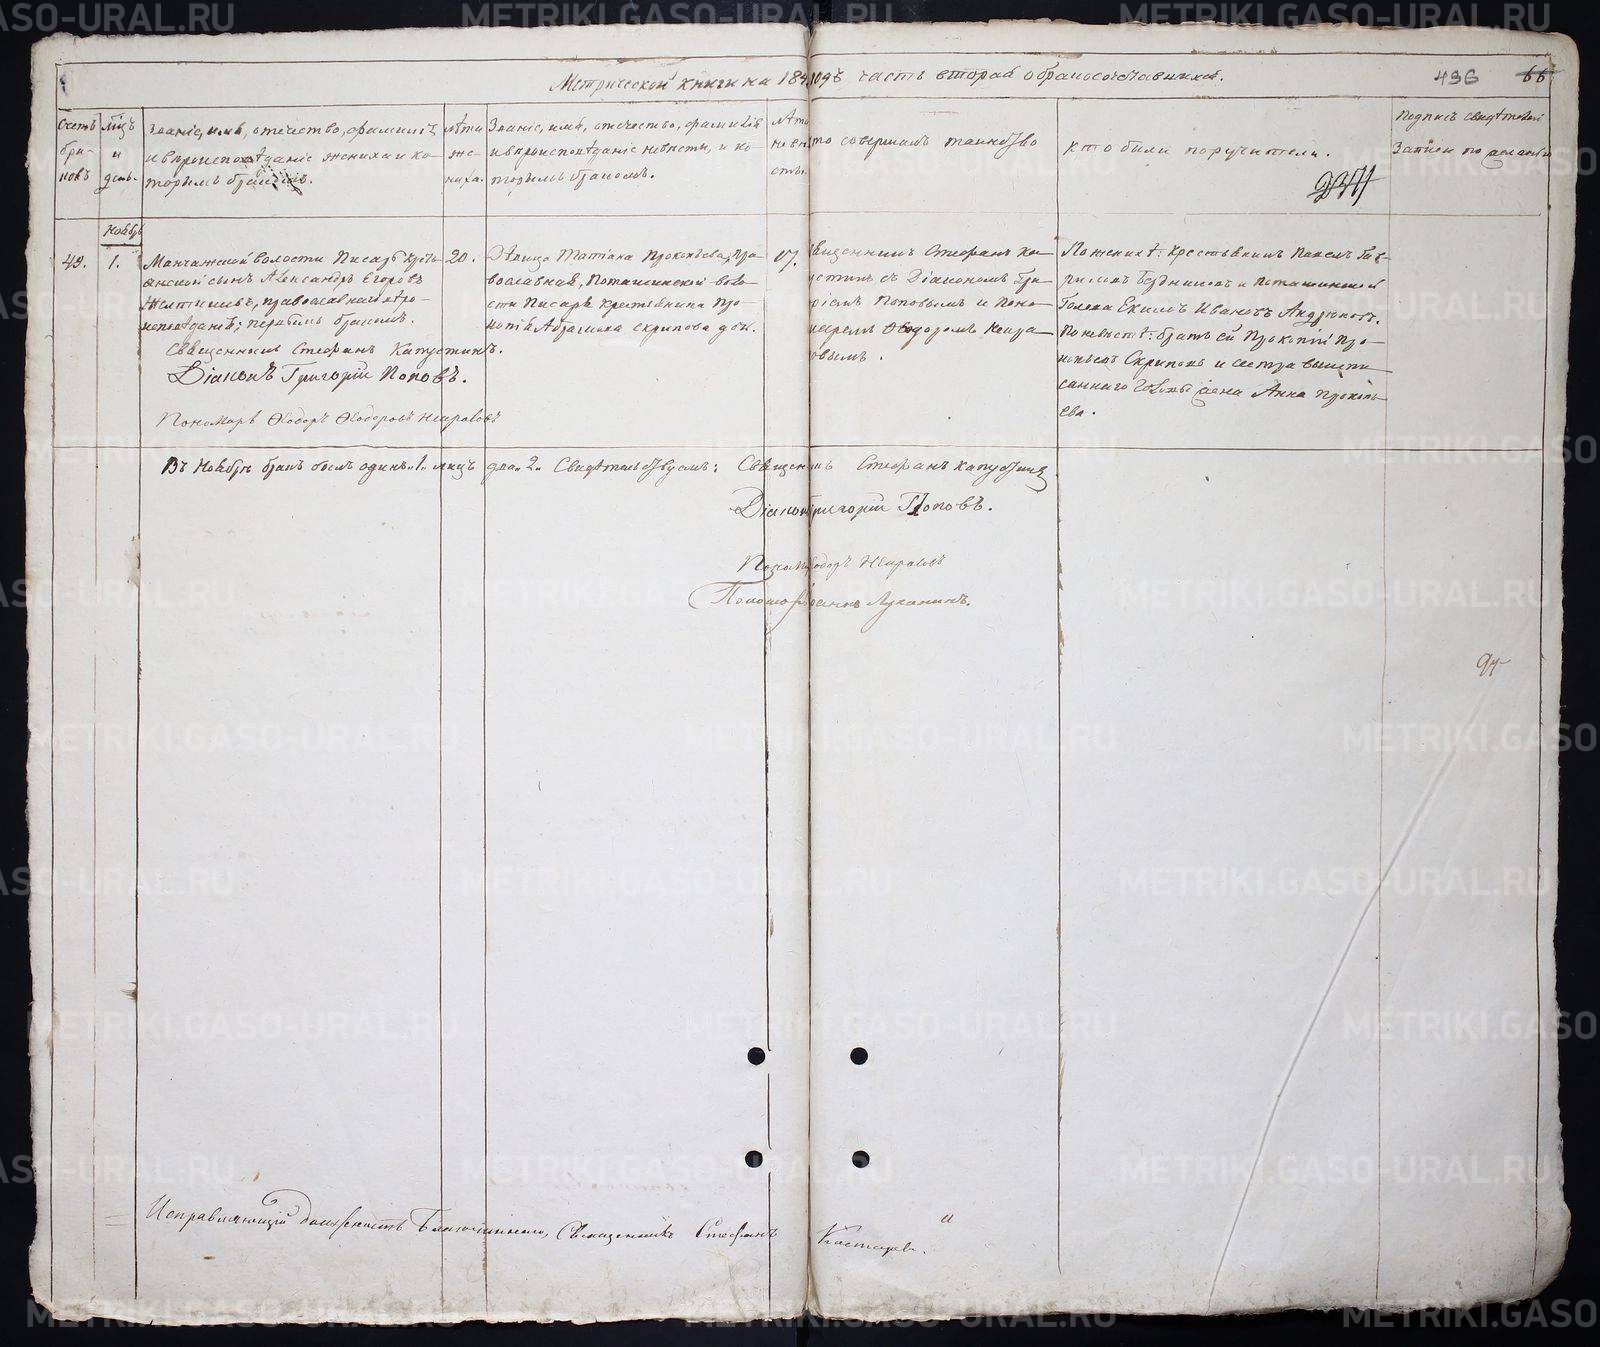 Метрической книги на 184 годъ часть вторая о бракосочетавшихся.
436 66
Счетъ браковъ
Мѣсяцъ и день.
Званіе, имя, отчество, фамилія
и вѣроисповѣданіе жениха и ко-
торымъ бракомъ.
лѣта же-
ниха.
Званіе, имя, отчество, фамилія
и вѣроисповѣданіе невѣсты, и ко-
торымъ бракомъ.
Лѣта невѣсты.
кто совершалъ таинство
кто были поручители.
Подпись свидѣтелей
записи по желанію
Ноябрь
49. 1.
Манчажской волости Писарь кресть-
янской сынъ Александръ Егоровъ
православнаго вѣро-
исповѣданія; первымъ бракомъ.
20.
Дѣвица Татіана Прокопьева, Пра-
вославная, Поташинской воло-
сти Писаря крестьянина Про-
копія Абрамова Скрипова дочь.
17.
Священникъ Стефанъ Ка-
пустинъ съ Діакономъ Гри-
горіемъ Поповымъ и Поно-
маремъ Ѳеодоромъ
По женихѣ: крестьянинъ Павелъ Гав-
риловъ Бердниковъ и Поташинской
Голова Екимъ Ивановъ Андрюковъ.
По невѣстѣ: братъ ей Прокопій Про-
копьевъ Скриповъ и сестра вышепи-
саннаго Головы жена Анна Прокопь-
ева.
Священникъ Стефанъ Капустинъ.
Діаконъ Григорій Поповъ.
Пономарь Ѳеодоръ Ѳеодоровъ
Въ Ноябрѣ бракъ былъ одинъ. 1. лицъ два. 2. Свидѣтельствуемъ: Священникъ Стефанъ Капустинъ
Діаконъ Григорій Поповъ.
Пономарь Ѳеодоръ
Пономарь Іоаннъ Луканинъ.
Исправляющій должность Благочиннаго, Священникъ Стефанъ Костаревъ.